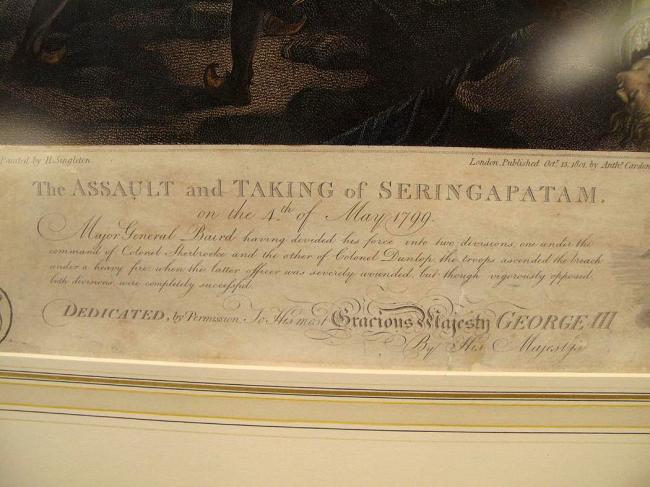 Painted by H. Singleton
London, Published Octr. 15, 1801, by Anthy. Cardon
The ASSAULT and TAKING of SERINGAPATAM.
on the 4th of May 1799.
Major General Baird having devided his force into two divisions, one under the
command of Colonel Sherbrooke and the other of Colonel Dunlop, the troops ascended the breach
under a heavy fire when the latter officer was severely wounded, but though vigorously opposed,
both divisions were completely successful.
DEDICATED, by Permission, To His most Gracious Majesty GEORGE III
By His Majesty's